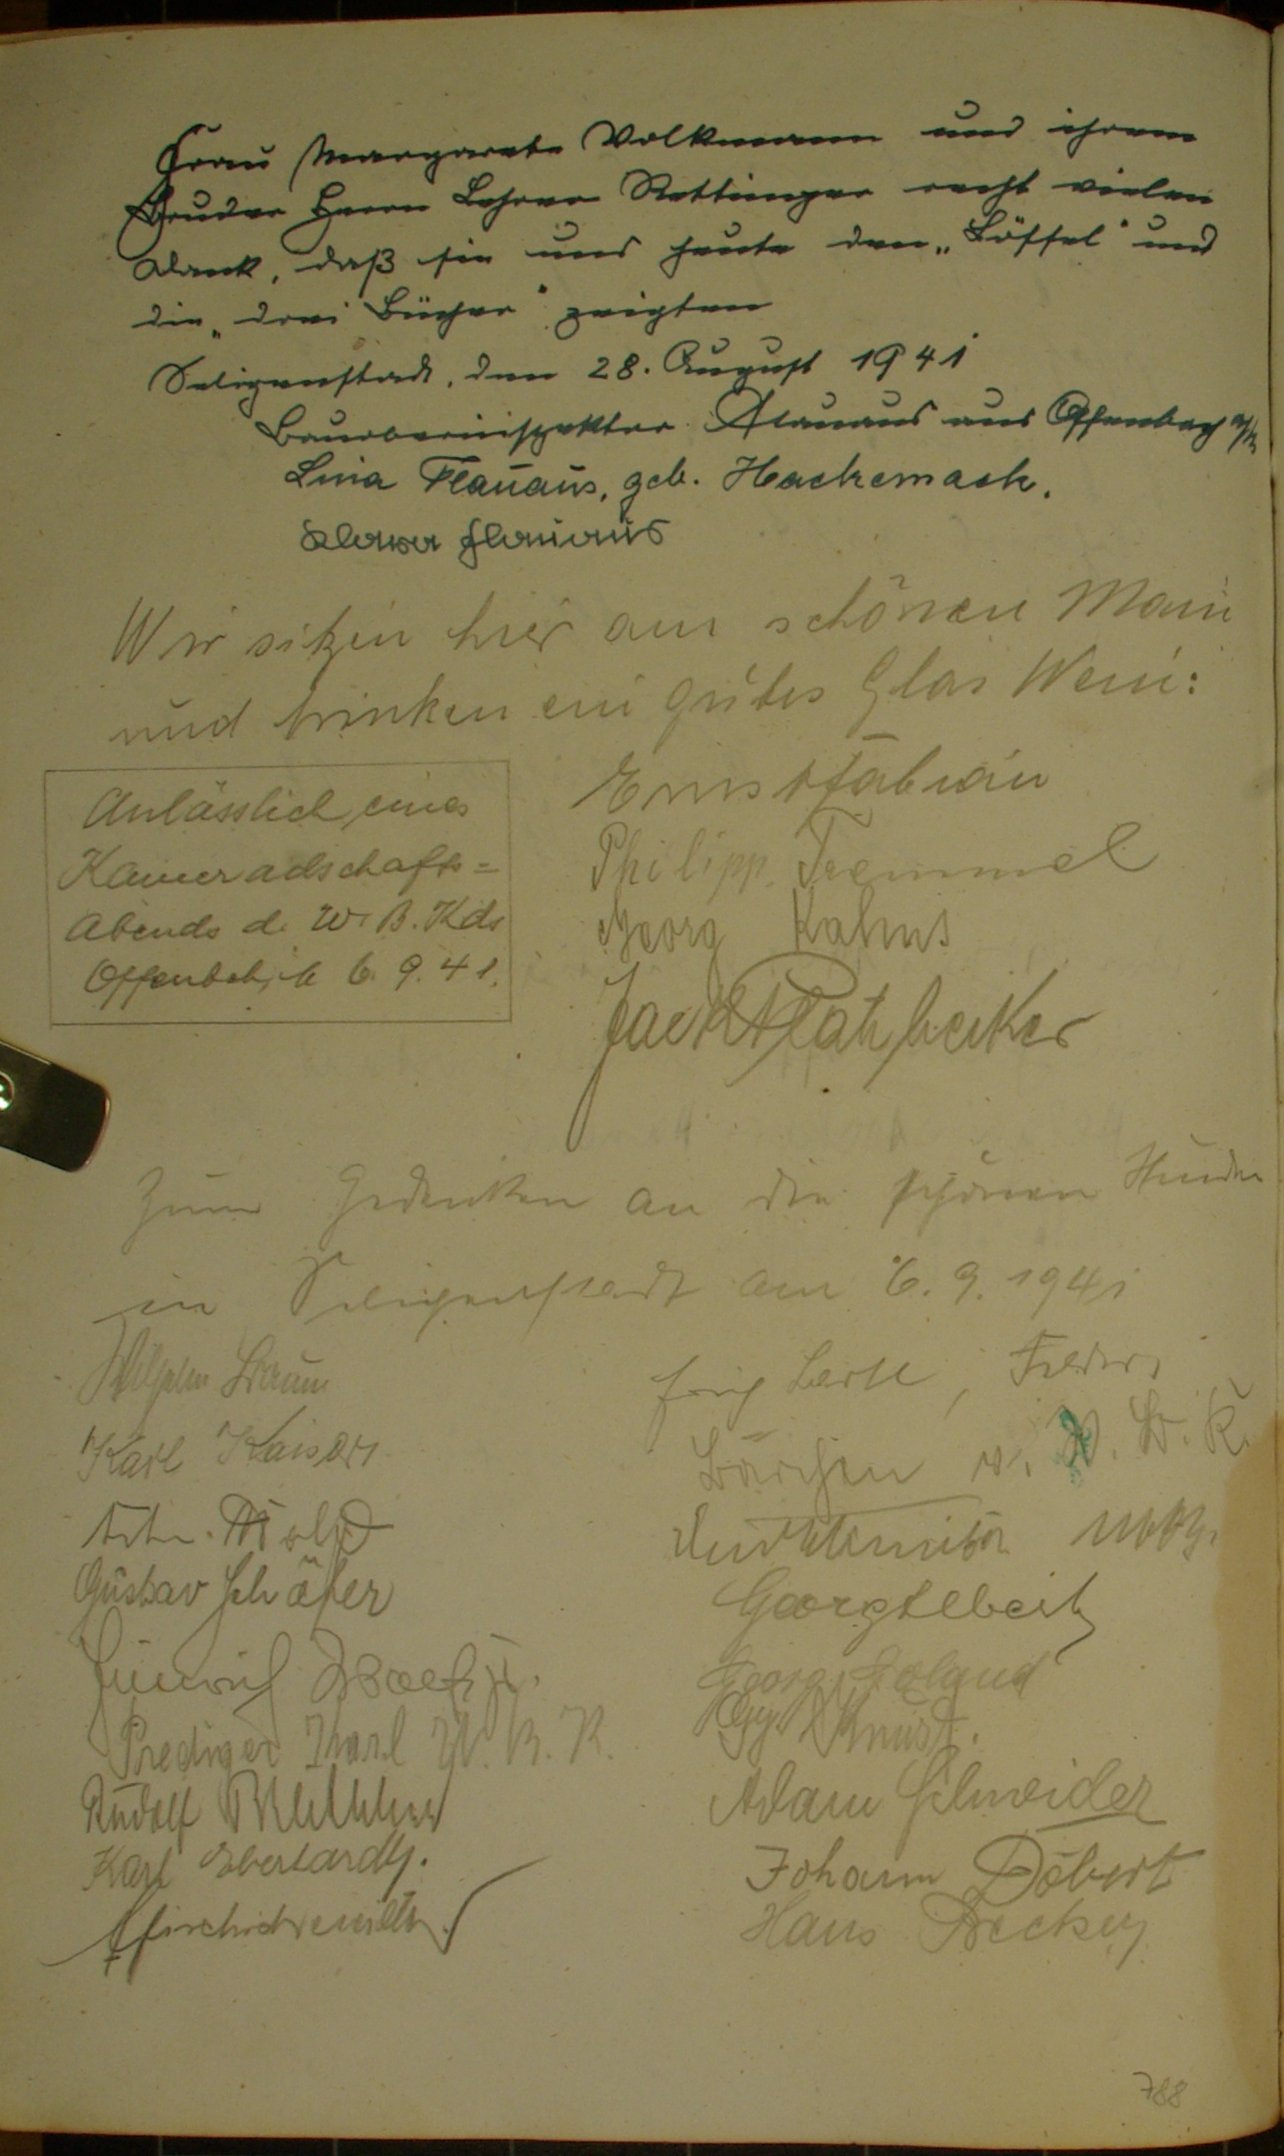 Frau Margarete Volkmann und ihrem
Bruder Herrn Lehrer Rettinger recht vielen
Dank, daß sie uns heute den „Löffel" und
die „drei Bücher" zeigten
Seligenstadt, den 28. August 1941
Bauoberinspektor Flauaus aus Offenbach a/M
Lina Flauaus, geb. Hackemack.
Flauaus
Wir sitzen hier am schönen Main
und trinken ein gutes Glas Wein:
Anlässlich eines
Kameradschafts=
Abends d. W. B. K. ds
Offenbch, 6. 9. 41.
Ernst Fabian
Philipp Tremmel
Georg Kahns
Jack Platzbecker
Zum Gedenken an die schönen Stunden
in Seligenstadt am 6. 9. 1941
Wilhelm Braun
Karl Kaiser
Gustav Schäfer
Heinrich
Prediger Karl W. B. K.
Rudolf
Karl Eberhardt.
Bärchen v. W. B. K.
Georg
Georg Roland
Adam Schneider
Johann Döbert
Hans Becker
788